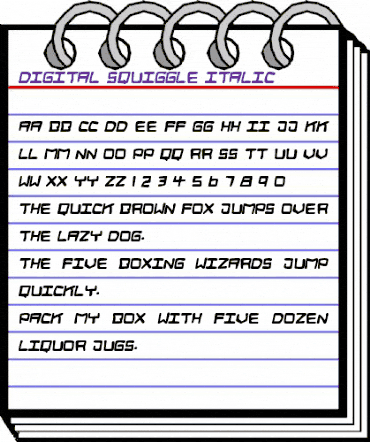 DIGITAL SQUIGGLE ITALIC
AA BB CC DD EE FF GG HH II JJ KK
LL MM NN OO PP QQ RR SS TT UU VV
WW XX YY ZZ 1 2 3 4 5 6 7 8 9 0
THE QUICK BROWN FOX JUMPS OVER
THE LAZY DOG.
THE FIVE BOXING WIZARDS JUMP
QUICKLY.
PACK MY BOX WITH FIVE DOZEN
LIQUOR JUGS.